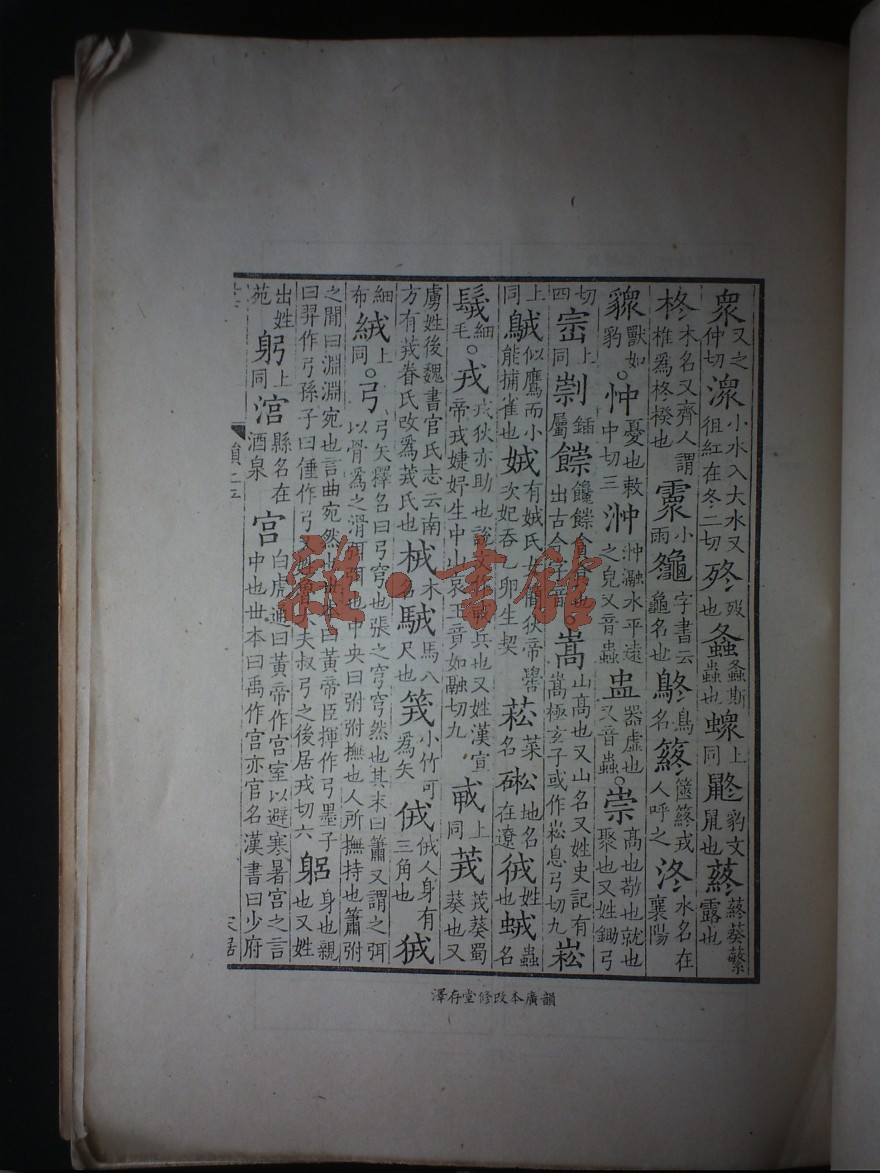 衆又之仲切潨小水入大水又徂紅在冬二切歾也螽螽斯蟲也上同鼨豹文鼠也蔠蔠葵蘩露也
柊木名又齊人謂椎爲柊楑也小雨字書云龜名也鴤鳥名戎人呼之泈水名在襄陽
獸如豹○忡憂也敕中切三浺浺瀜水平遠之皃又音蟲盅器虛也又音蟲○崇高也敬也就也聚也又姓鋤弓
切四崈上同鍤屬饞貪食也出古今字音○嵩山高也又山名又姓史記有嵩極玄子或作崧息弓切九崧
上同似鷹而小能捕雀也娀有娀氏女簡狄帝嚳次妃吞乙卵生契菘菜名硹地名在遼姓也蟲名
細毛○戎戎狄亦助也說文作兵也又姓漢宣帝戎婕妤生中山哀王竟如融切九上同茙茙葵蜀葵也又
虜姓後魏書官氏志云南方有茙眷氏改爲茙氏也木名駥馬八尺也小竹可爲矢㑖㑖人身有三角也狨
細布絨上同○弓弓矢釋名曰弓穹也張之穹穹然也其末曰簫又謂之弭以骨爲之滑弭弭也中央曰弣弣撫也人所撫持也簫弣
之閒曰淵淵宛也言曲宛然也世本曰黃帝臣揮作弓墨子曰羿作弓孫子曰倕作弓又姓魯大夫叔弓之後居戎切六躳身也親也又姓
出姓苑躬上同縣名在酒泉宮白虎通曰黃帝作宮室以避寒暑宮之言中也世本曰禹作宮亦官名漢書曰少府
澤存堂修改本廣韻
雜·書館